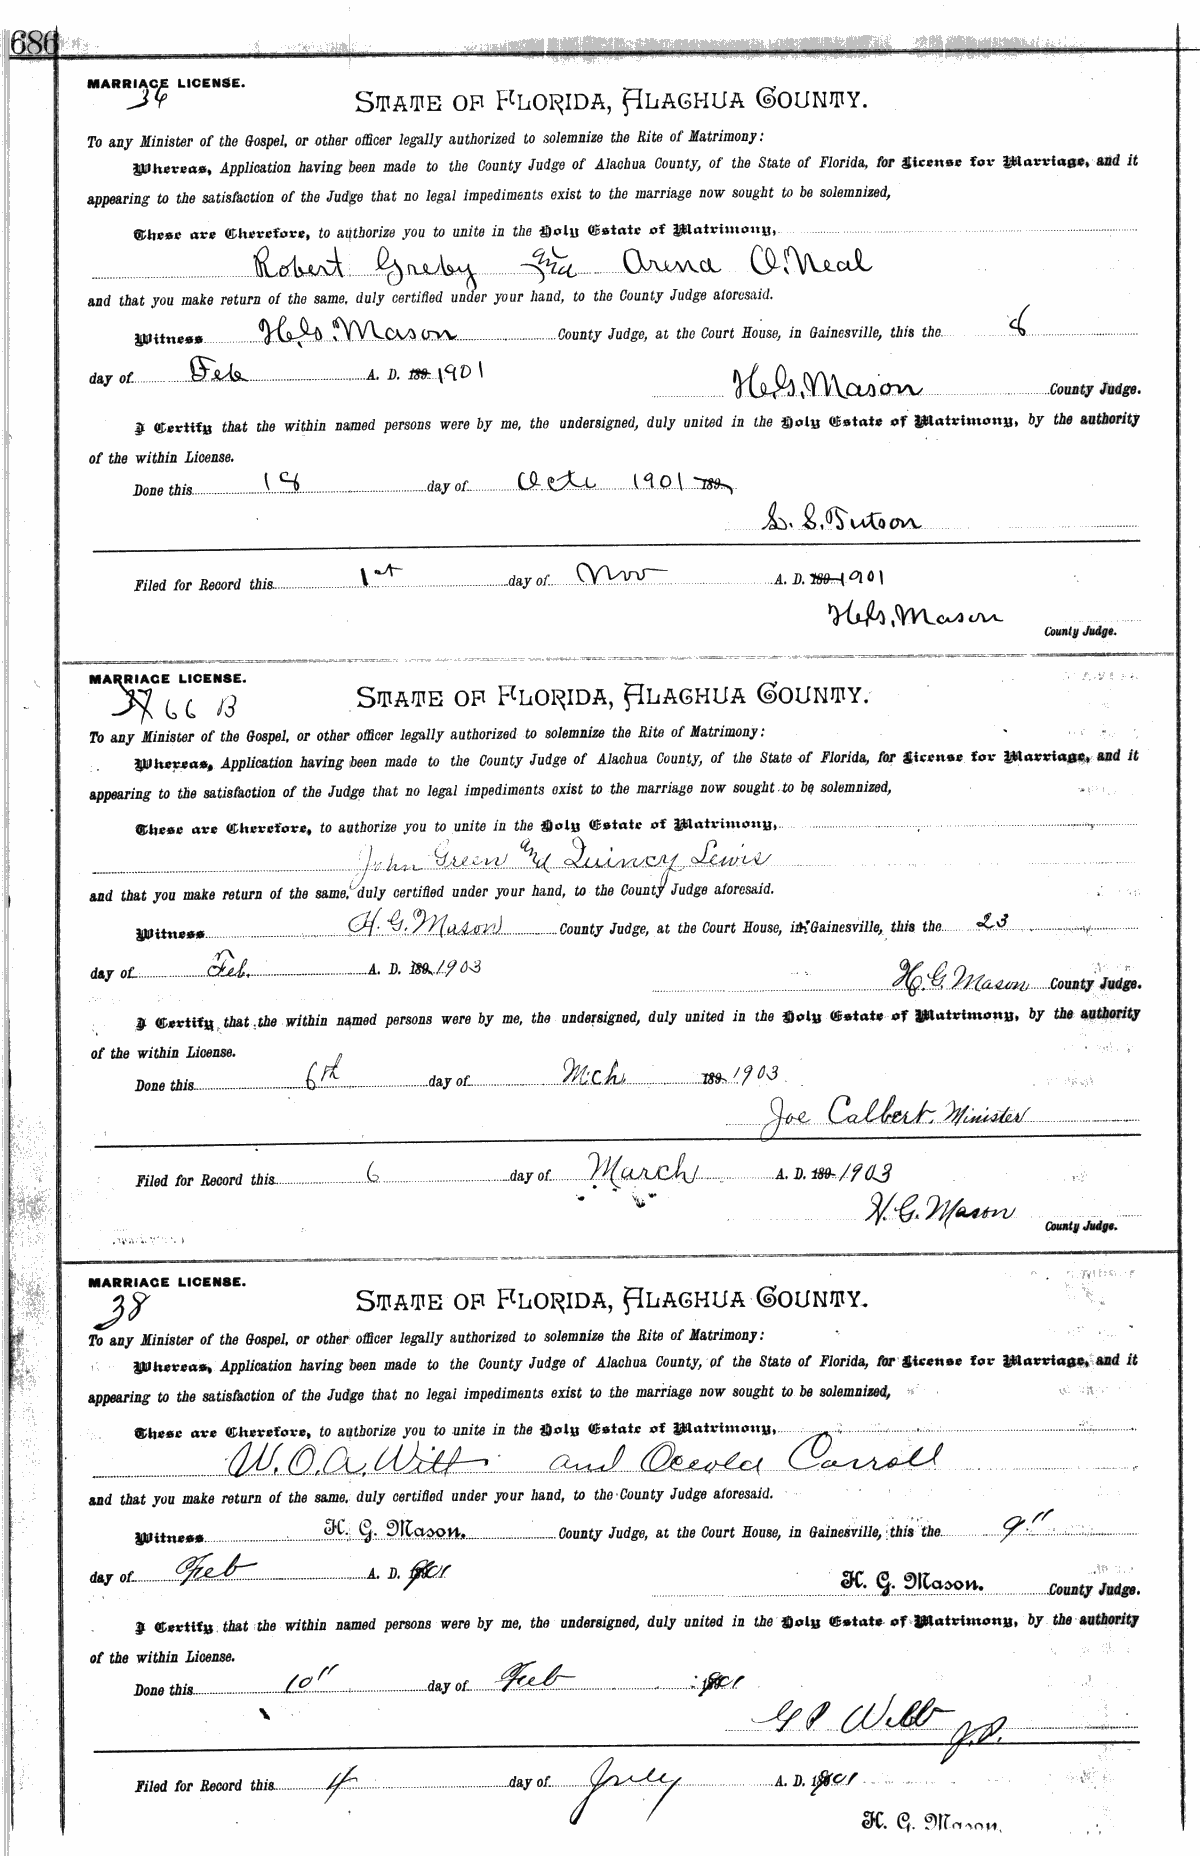 686
MARRIAGE LICENSE.
36
STATE OF FLORIDA, ALACHUA COUNTY.
To any Minister of the Gospel, or other officer legally authorized to solemnize the Rite of Matrimony:
Whereas, Application having been made to the County Judge of Alachua County, of the State of Florida, for License for Marriage, and it
appearing to the satisfaction of the Judge that no legal impediments exist to the marriage now sought to be solemnized,
These are Therefore, to authorize you to unite in the Holy Estate of Matrimony,
Robert Greby and Arena O.Neal
and that you make return of the same, duly certified under your hand, to the County Judge aforesaid.
Witness H.G. Mason County Judge, at the Court House, in Gainesville, this the 8
day of Feb A. D. 189 1901
H.G. Mason County Judge.
I Certify that the within named persons were by me, the undersigned, duly united in the Holy Estate of Matrimony, by the authority
of the within License.
Done this 18 day of Oct 1901 189
S. S. Tutson
Filed for Record this 1st day of Nov A. D. 189 1901
H.G. Mason
County Judge.
MARRIAGE LICENSE.
37 66 B
STATE OF FLORIDA, ALACHUA COUNTY.
To any Minister of the Gospel, or other officer legally authorized to solemnize the Rite of Matrimony:
Whereas, Application having been made to the County Judge of Alachua County, of the State of Florida, for License for Marriage, and it
appearing to the satisfaction of the Judge that no legal impediments exist to the marriage now sought to be solemnized,
These are Therefore, to authorize you to unite in the Holy Estate of Matrimony,
John Green and Quincy Lewis
and that you make return of the same, duly certified under your hand, to the County Judge aforesaid.
Witness H. G. Mason County Judge, at the Court House, in Gainesville, this the 23
day of Feb. A. D. 189 1903
H. G. Mason County Judge.
I Certify that the within named persons were by me, the undersigned, duly united in the Holy Estate of Matrimony, by the authority
of the within License.
Done this 6th day of Mch 189 1903
Joe Calbert, Minister
Filed for Record this 6 day of March A. D. 189 1903
H. G. Mason
County Judge.
MARRIAGE LICENSE.
38
STATE OF FLORIDA, ALACHUA COUNTY.
To any Minister of the Gospel, or other officer legally authorized to solemnize the Rite of Matrimony:
Whereas, Application having been made to the County Judge of Alachua County, of the State of Florida, for License for Marriage, and it
appearing to the satisfaction of the Judge that no legal impediments exist to the marriage now sought to be solemnized,
These are Therefore, to authorize you to unite in the Holy Estate of Matrimony,
W. O. A. Witt and Oceola Carroll
and that you make return of the same, duly certified under your hand, to the County Judge aforesaid.
Witness H. G. Mason. County Judge, at the Court House, in Gainesville, this the 9"
day of Feb A. D. 1901
H. G. Mason. County Judge.
I Certify that the within named persons were by me, the undersigned, duly united in the Holy Estate of Matrimony, by the authority
of the within License.
Done this 10" day of Feb 1901
G P Webb J.P.
Filed for Record this 4 day of July A. D. 1901
H. G. Mason.